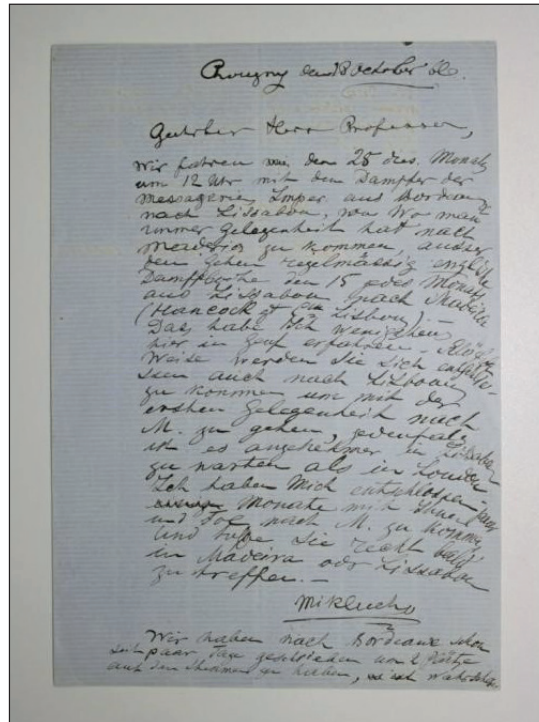 den 18 October 66.
Geehrter Herr Professor,
Wir fahren nur den 25 dies. Monats
um 12 Uhr mit dem Dampfer der
Messagerie Imper. aus Bordeaux
nach Lissabon, von wo man
immer Gelegenheit hat nach
Madeira zu kommen, ausser
dem gehen regelmässig englische
Dampfbothe den 15 jedes Monats
aus Lissabon nach Madeira
(Hancock et Co Lisbon). —
Das habe ich wenigstens
hier in Genf erfahren —
Weise werden Sie sich entschlies-
sen auch nach Lissabon
zu kommen um mit der
ersten Gelegenheit nach
M. zu gehen, jedenfals
ist es angenehmer in Lissabon
zu warten als in London
Ich haben mich entschlossen paar
Monate mit Ihnen
und Fol nach M. zu kommen
und hoffe Sie recht bald
in Madeira oder Lissabon
zu treffen. —
Miklucho
Wir haben nach Bordeaux schon
seit paar Tage geschrieben um 2 Plätze
auf dem zu haben,